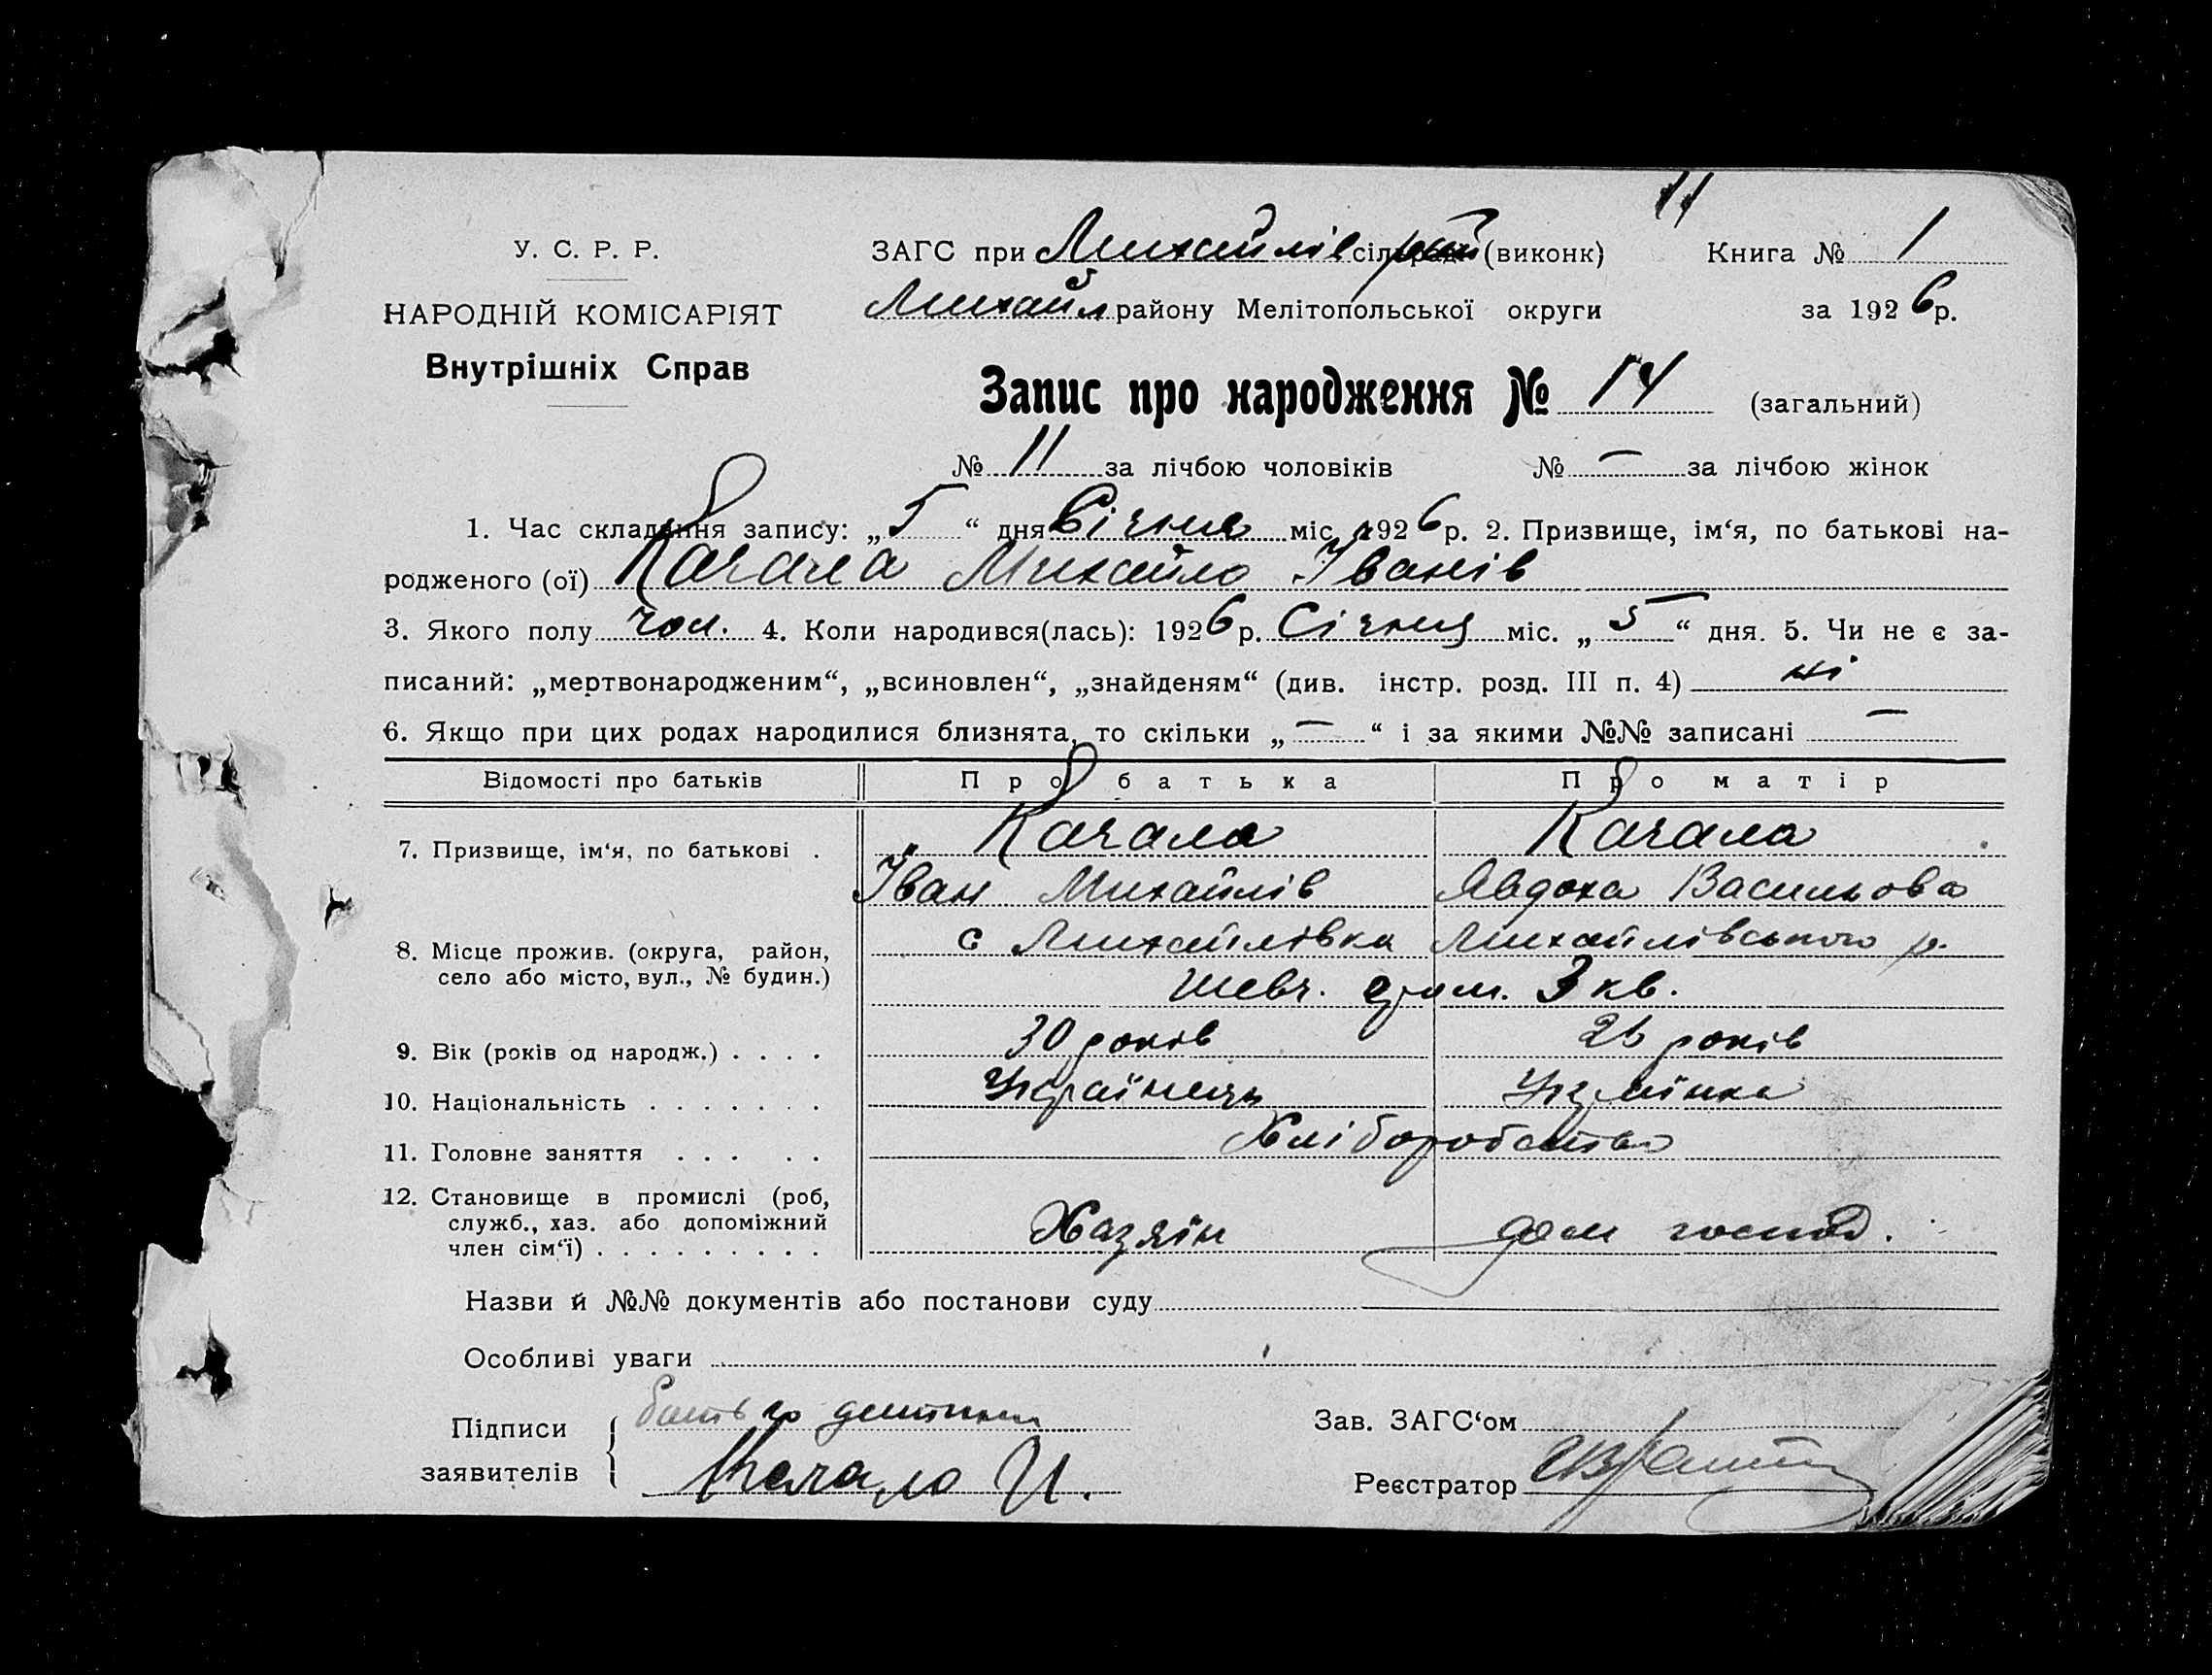 11
У. С. Р. Р.
ЗАГС при Михайлів сіл рай (виконк) Книга № 1
НАРОДНІЙ КОМІСАРІЯТ
Михайл району Мелітопольської округи за 1926 р.
Внутрішніх Справ
Запис про народження № 14 (загальний)
№ 11 за лічбою чоловіків № — за лічбою жінок
1. Час складання запису: „5“ дня Січня міс. 1926 р. 2. Призвище, ім‘я, по батькові на-
родженого (ої) Качала Михайло Іванів
3. Якого полу чол. 4. Коли народився(лась): 1926 р. Січня міс. „5“ дня. 5. Чи не є за-
писаний: „мертвонародженим“, „всиновлен“, „знайденям“ (див. інстр. розд. III п. 4) ні
6. Якщо при цих родах народилися близнята, то скільки „—“ і за якими №№ записані —
Відомості про батьків Про батька Про матір
7. Призвище, ім‘я, по батькові . Качала Качала
Іван Михайлів Явдоха Васильова
8. Місце прожив. (округа, район, с Михайлівка Михайлівського р.
село або місто, вул., № будин.) Шевч. 3 кв.
9. Вік (років од народж.) . . . . 30 років 26 років
10. Національність . . . . . . . Українець Українка
11. Головне заняття . . . . . Хліборобство
12. Становище в промислі (роб,
служб., хаз. або допоміжний Хазяїн дом господ.
член сім‘ї) . . . . . . . . .
Назви й №№ документів або постанови суду
Особливі уваги
Підписи батько дитини Зав. ЗАГС‘ом
заявителів Качало И. Реєстратор